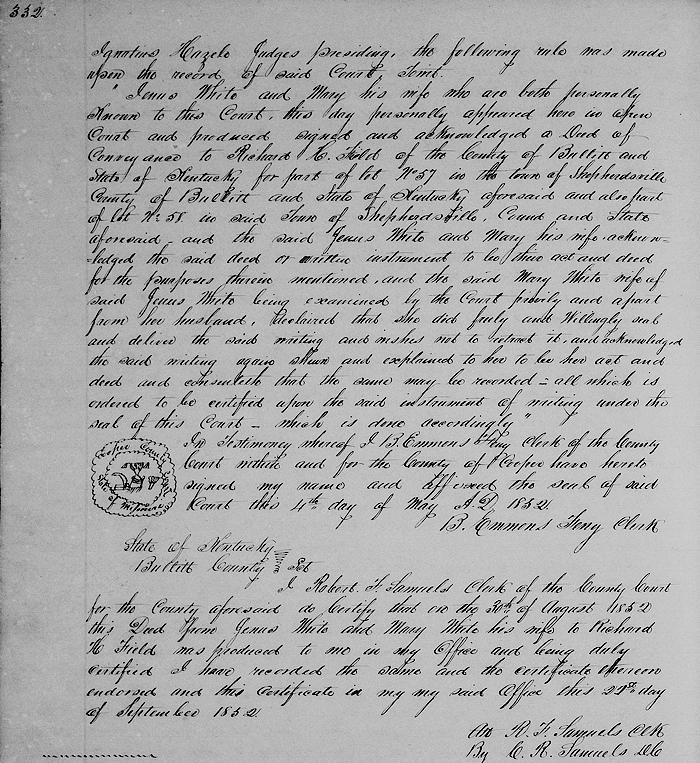 332
Ignatius Hazele Judges presiding, the following rule was made
upon the record of said Court, Towit.
"Jenus White and Mary his wife who are both personally
Known to this Court, this day personally appeared here in open
Court and produced signed and acknowledged a Deed of
Conveyance to Richard H. Field of the County of Bullitt and
State of Kentucky for part of lot No 57 in the town of Shepherdsville
County of Bullitt and State of Kentucky aforesaid and also part
of lot No 58 in said Town of Shepherdsville, County and State
aforesaid - and the said Jenus White and Mary his wife acknow-
-ledged the said deed or written instrument to be their act and deed
for the purposes therein mentioned, and the said Mary White wife of
said Jenus White being examined by the Court privily and apart
from her husband, Declaired that she did freely and Willingly seal
and deliver the said writing and wishes not to retract it, and acknowledged
the said writing again shewn and explained to her to be her act and
deed and consenteth that the same may be recorded - all which is
ordered to be certified upon the said instrument of writing under the
seal of this Court - which is done accordingly"
In Testimony whereof I B. Emmons Clerk of the County
Court within and for the County of Cooper have hereto
signed my name and affixed the seal of said
Court this 4th day of May A.D. 1852
Cooper County
State of Missouri
B. Emmons Clerk
State of Kentucky
Bullitt County Sct
I Robert F. Samuels Clerk of the County Court
for the County aforesaid do Certify that on the 30th of August 1852
this Deed from Jenus White and Mary White his wife to Richard
H Field was produced to me in my Office and being duly
certified I have recorded the same and the certificate thereon
endorsed and this Certificate in my my said Office this day
of September 1852.
Att R. F. Samuels Clk
By C. R. Samuels DC